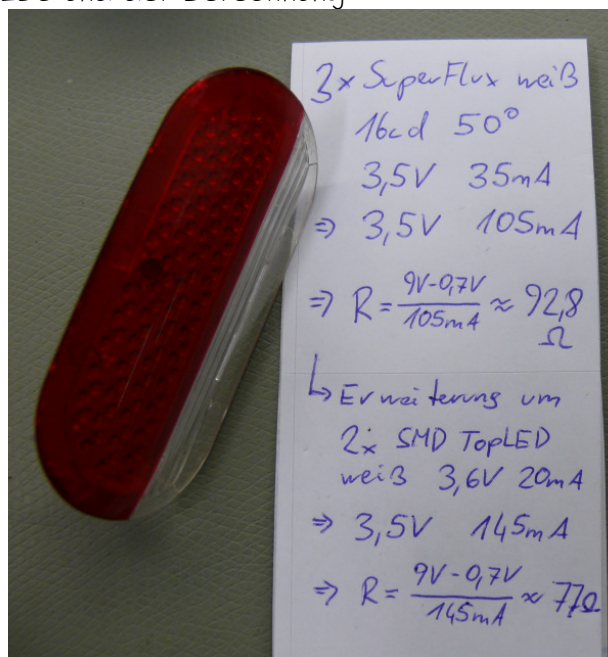 3x SuperFlux weiß
16cd 50°
3,5V 35mA
⇒ 3,5V 105mA
⇒ R = 9V-0,7V / 105mA ≈ 92,8
Ω
↳ Erweiterung um
2x SMD TopLED
weiß 3,6V 20mA
⇒ 3,5V 145mA
⇒ R = 9V-0,7V / 145mA ≈ 77Ω